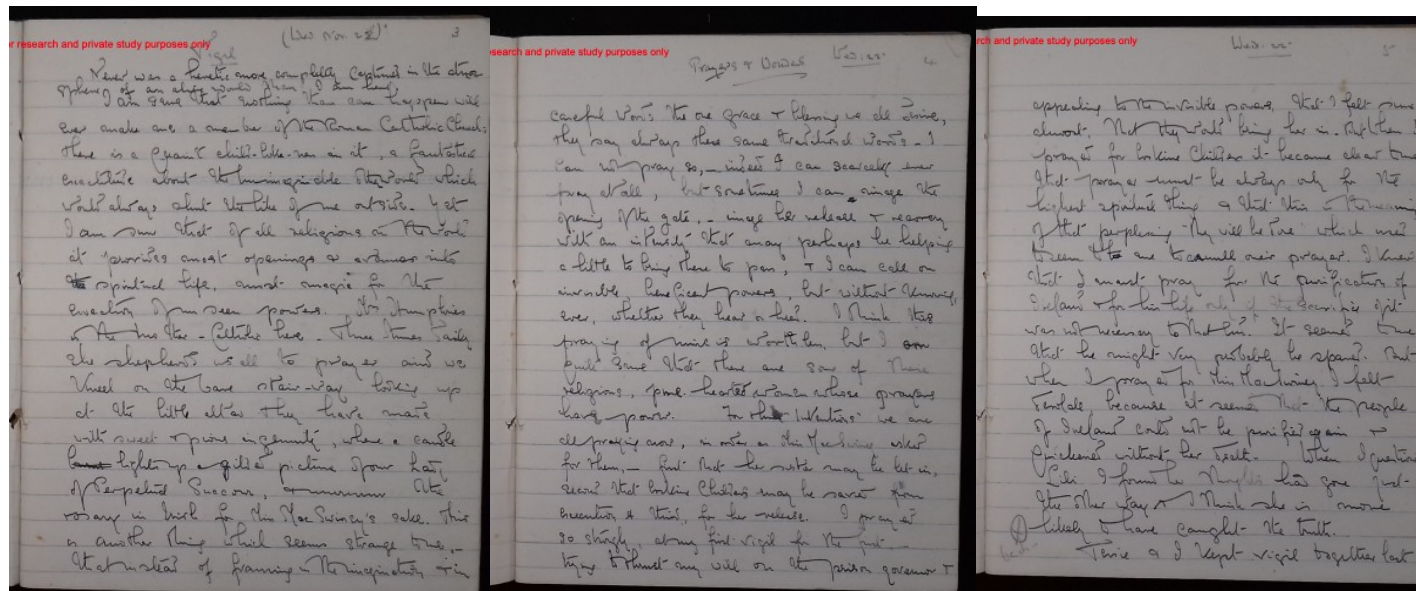 or research and private study purposes only
(Wed Nov. 22)
3
Vigil
Never was a heretic more completely captured in the atmos-
phere of an alien world than I am here.
I am sure that nothing than can happen will
ever make me a member of the Roman Catholic Church:
there is a quaint child-like-ness in it, a fantastic
exactitude about the unimaginable otherworld which
would always shut the like of me outside. Yet
I am sure that of all religions in the world
it provides most openings & avenues into
spiritual life, most magic for the
evocation of unseen powers. Mrs Humphries
is the
Catholic here. Three times daily
she shepherds us all to prayer and we
kneel on the bare stair-way looking up
at the little altar they have made
with sweet & pious ingenuity, where a candle
lights up a gilded picture of our Lady
of Perpetual Succour, the
rosary in Irish for Miss MacSwiney's sake. This
is another thing which seems strange to me, -
that instead of framing in the imagination & in
search and private study purposes only
Prayers & Voices
Wed. 22.
4
careful words the one grace & blessing we all desire,
they say always these same traditional words - I
can not pray so, - indeed I can scarcely ever
pray at all, but sometimes I can image the
opening of the gate, - image her release & recovery
with an intensity that may perhaps be helping
a little to bring these to pass, & I can call on
invisible beneficent powers, but without knowing,
ever, whether they hear or heed. I think this
praying of mine is worthless, but I am
quite sure that there are some of these
religious, pure-hearted women whose prayers
have power. For three 'intentions' we are
all praying now, in order as Miss MacSwiney asked
for them, - first that her sister may be let in,
second that Erskine Childers may be saved from
execution & third, for her release. I prayed
so strongly, at my first vigil for the first -
trying to thrust my will on the prison governor &
rch and private study purposes only
Wed. 22.
5
appealing to the invisible powers, that I felt sure
almost, that they would bring her in. But when I
prayed for Erskine Childers it became clear to me
that prayer must be always only for the
highest spiritual thing & that this is the meaning
of that perplexing 'Thy will be done' which used
to seem to me to annul one's prayer. I knew
that I must pray for the purification of
Ireland & for his life only if the sacrifice of it
was not necessary to that. It seemed to me
that he might very probably be spared. But
when I prayed for Miss MacSwiney I felt
terrible, because it seemed that the people
of Ireland could not be purified again &
quickened without her death. When I questioned
Lili I found her thoughts had gone just
the other way & I think she is more
likely to have caught the truth.
Tessie & I kept vigil together last